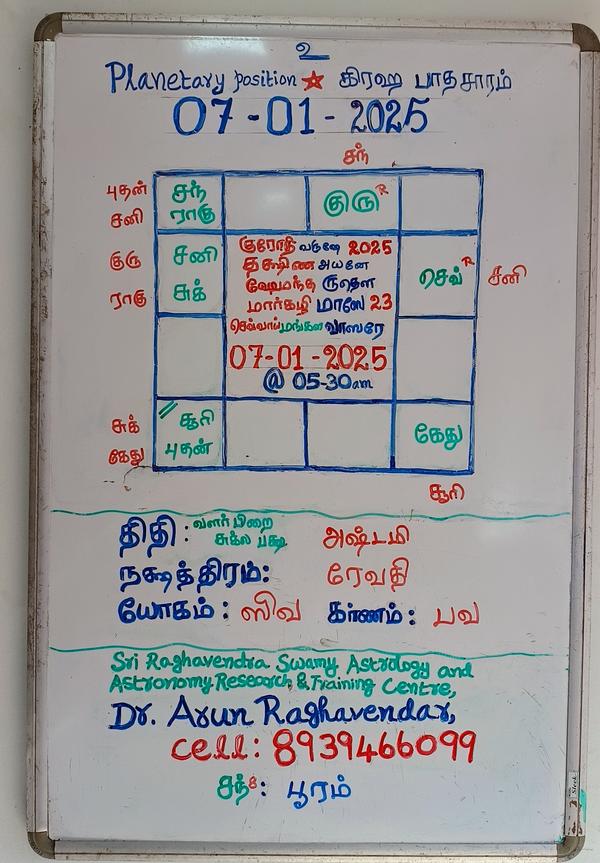 உ
Planetary position ★ கிரஹ பாதசாரம்
07-01-2025
சந்
புதன்
சனி
குரு
ராகு
சந்
ராகு
குரு R
சனி
சுக்
குரோதி வருஷே 2025
தக்ஷிண அயனே
ஹேமந்த ருதௌ
மார்கழி மாஸே 23
செவ்வாய்/மங்கள வாஸரே
07-01-2025
@ 05-30am
செவ் R
சனி
சுக்
கேது
சூரி
புதன்
கேது
சூரி
திதி: வளர் பிறை
சுக்ல பக்ஷ அஷ்டமி
நக்ஷத்திரம்: ரேவதி
யோகம்: ஸிவ கர்ணம்: பவ
Sri Raghavendra Swamy Astrology and
Astronomy Research & Training Centre,
Dr. Arun Raghavendar,
cell: 8939466099
சந் 8: பூரம்